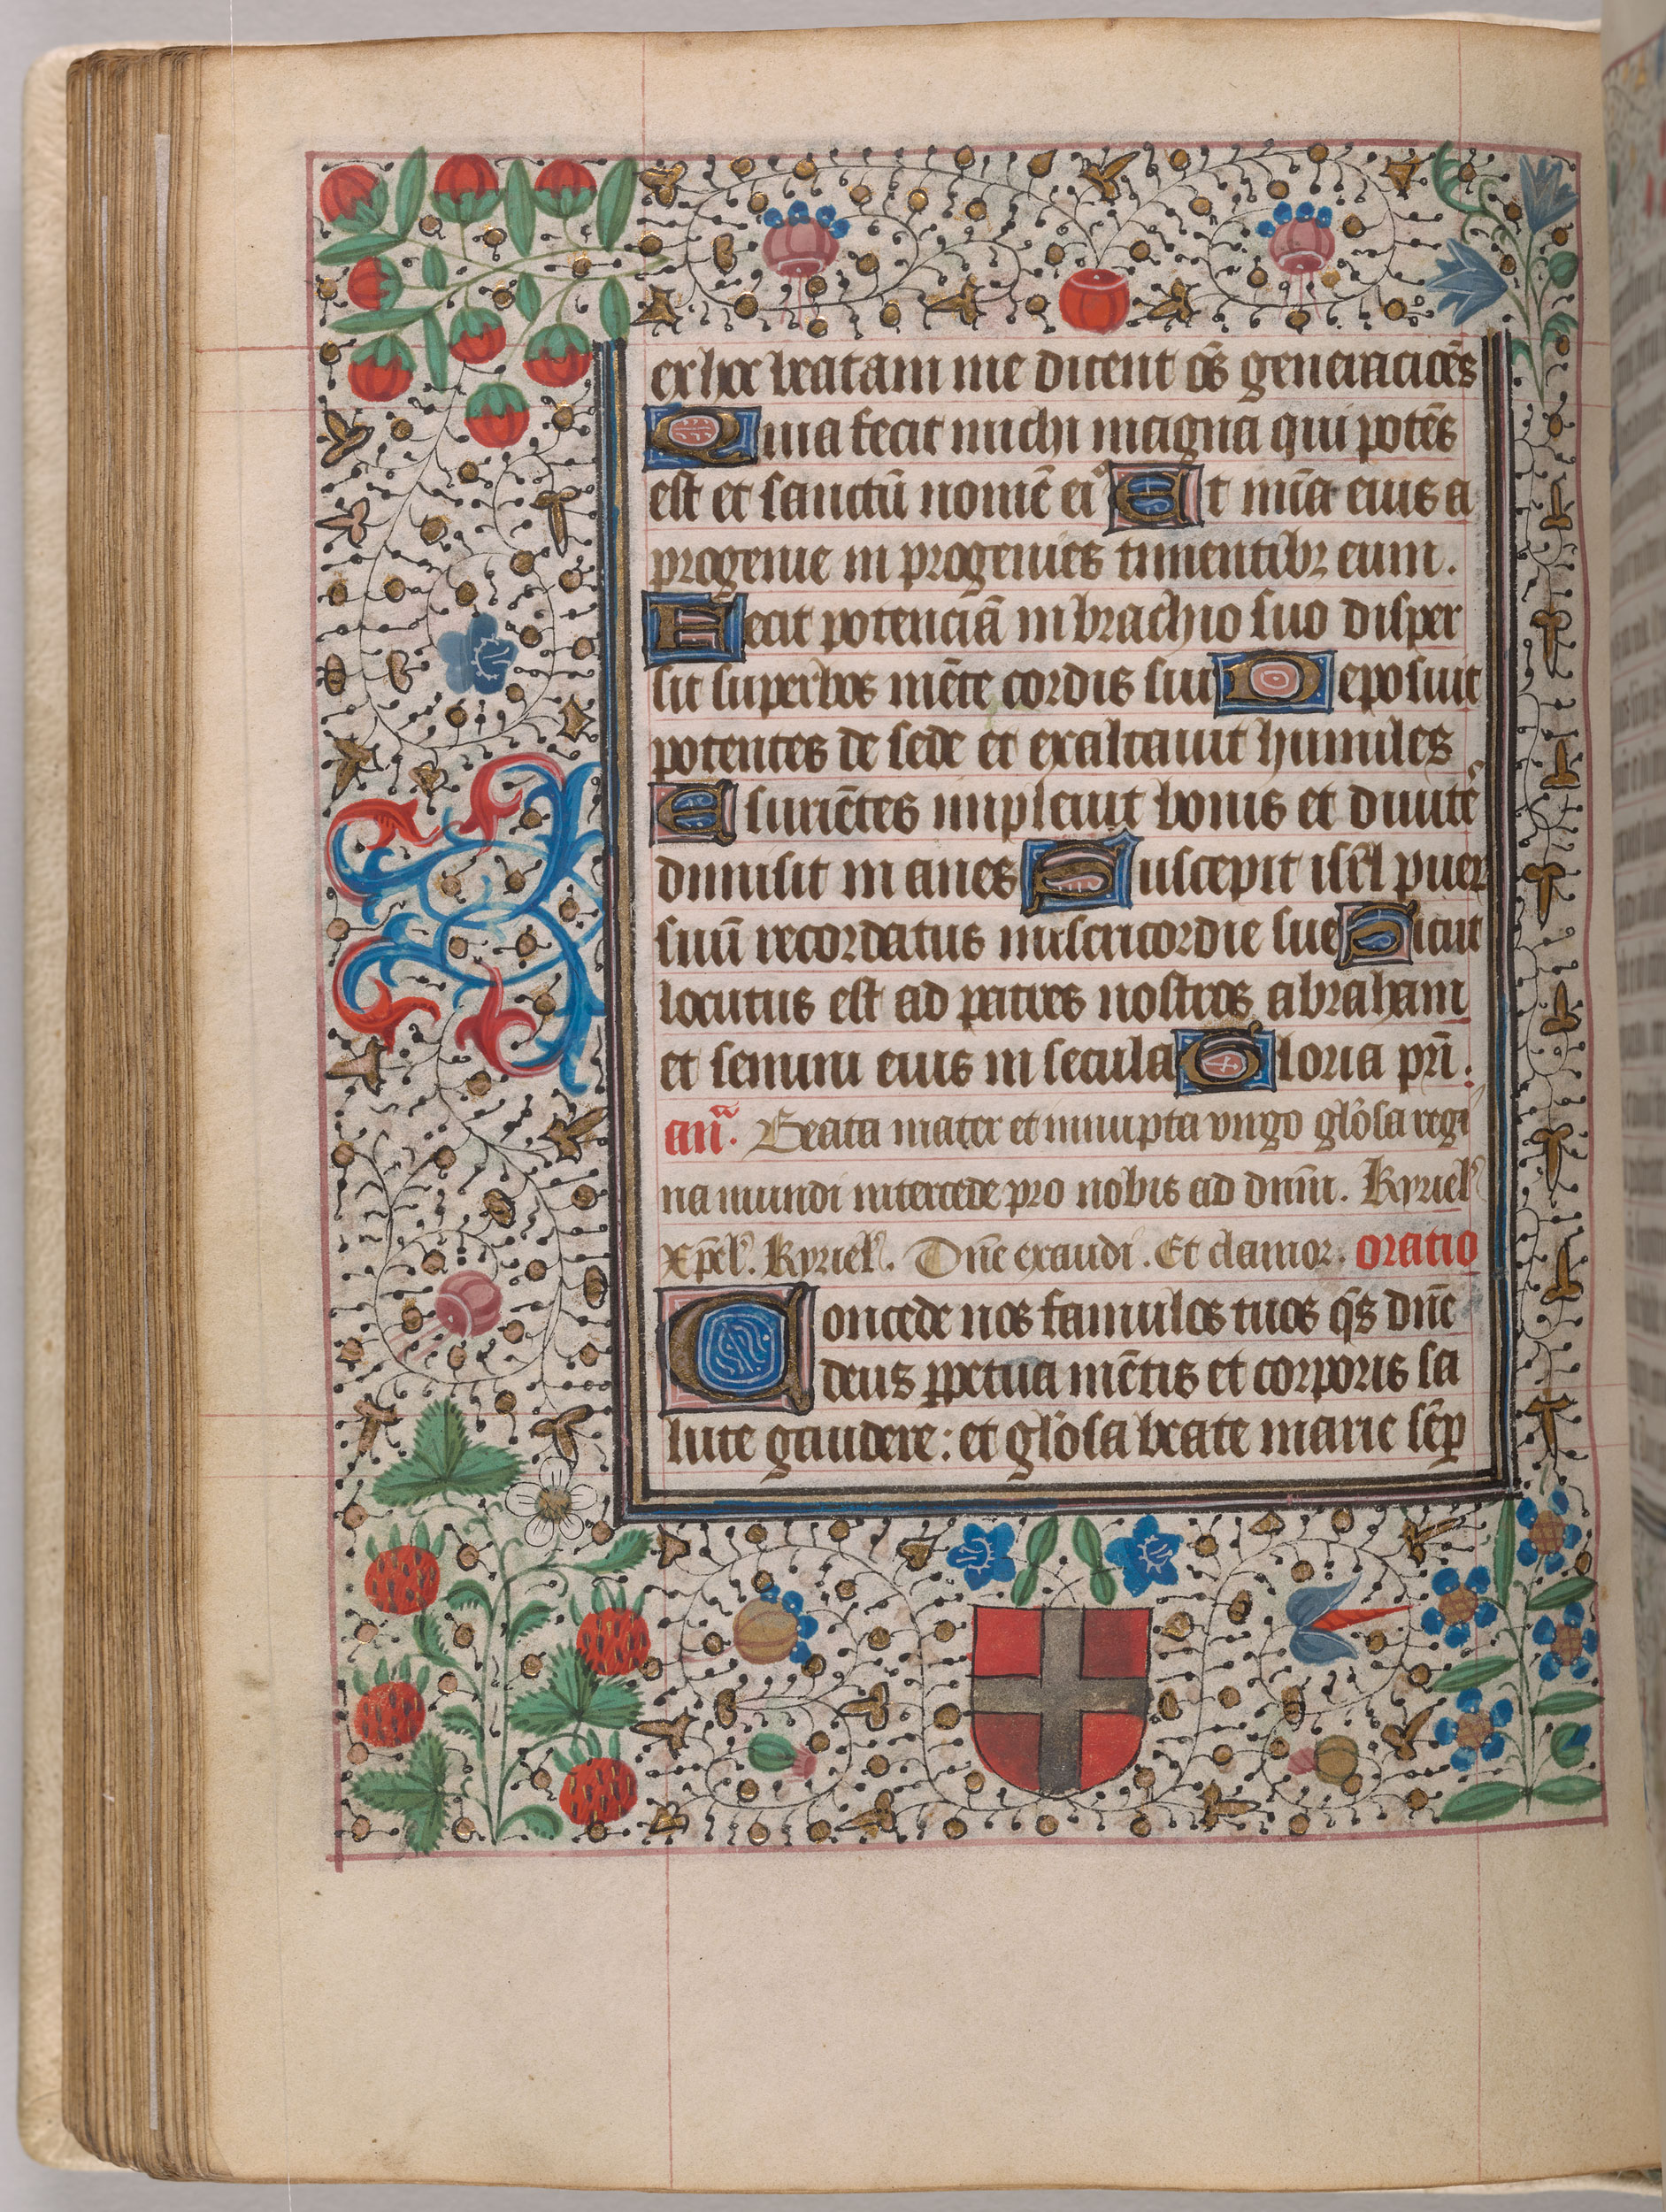 ex hoc beatam me dicent oēs generacioēs
Quia fecit michi magna qui potēs
est et sanctū nomē ei⁹ Et mīa eius a
progenie in progenies timentibꝫ eum.
Fecit potenciā in brachio suo disper
sit superbos mēte cordis sui Deposuit
potentes de sede et exaltauit humiles
Esuriētes impleuit bonis et diuitē
dimisit inanes Suscepit isrl̄ puer
suū recordatus misericordie sue Sicut
locutus est ad patres nostros abraham
et semini eius in secula Gloria pri̅.
an̄. Beata mater et innupta virgo glōsa regi
na mundi intercede pro nobis ad dnm̄. Kyriel̓
xpēl̓. Kyriel̓. Dn̄e exaudi. Et clamor. oratio
Concede nos famulos tuos q̄s dn̄e
deus ꝑpetua mētis et corporis sa
lute gaudere: et glōsa beate marie sēꝑ